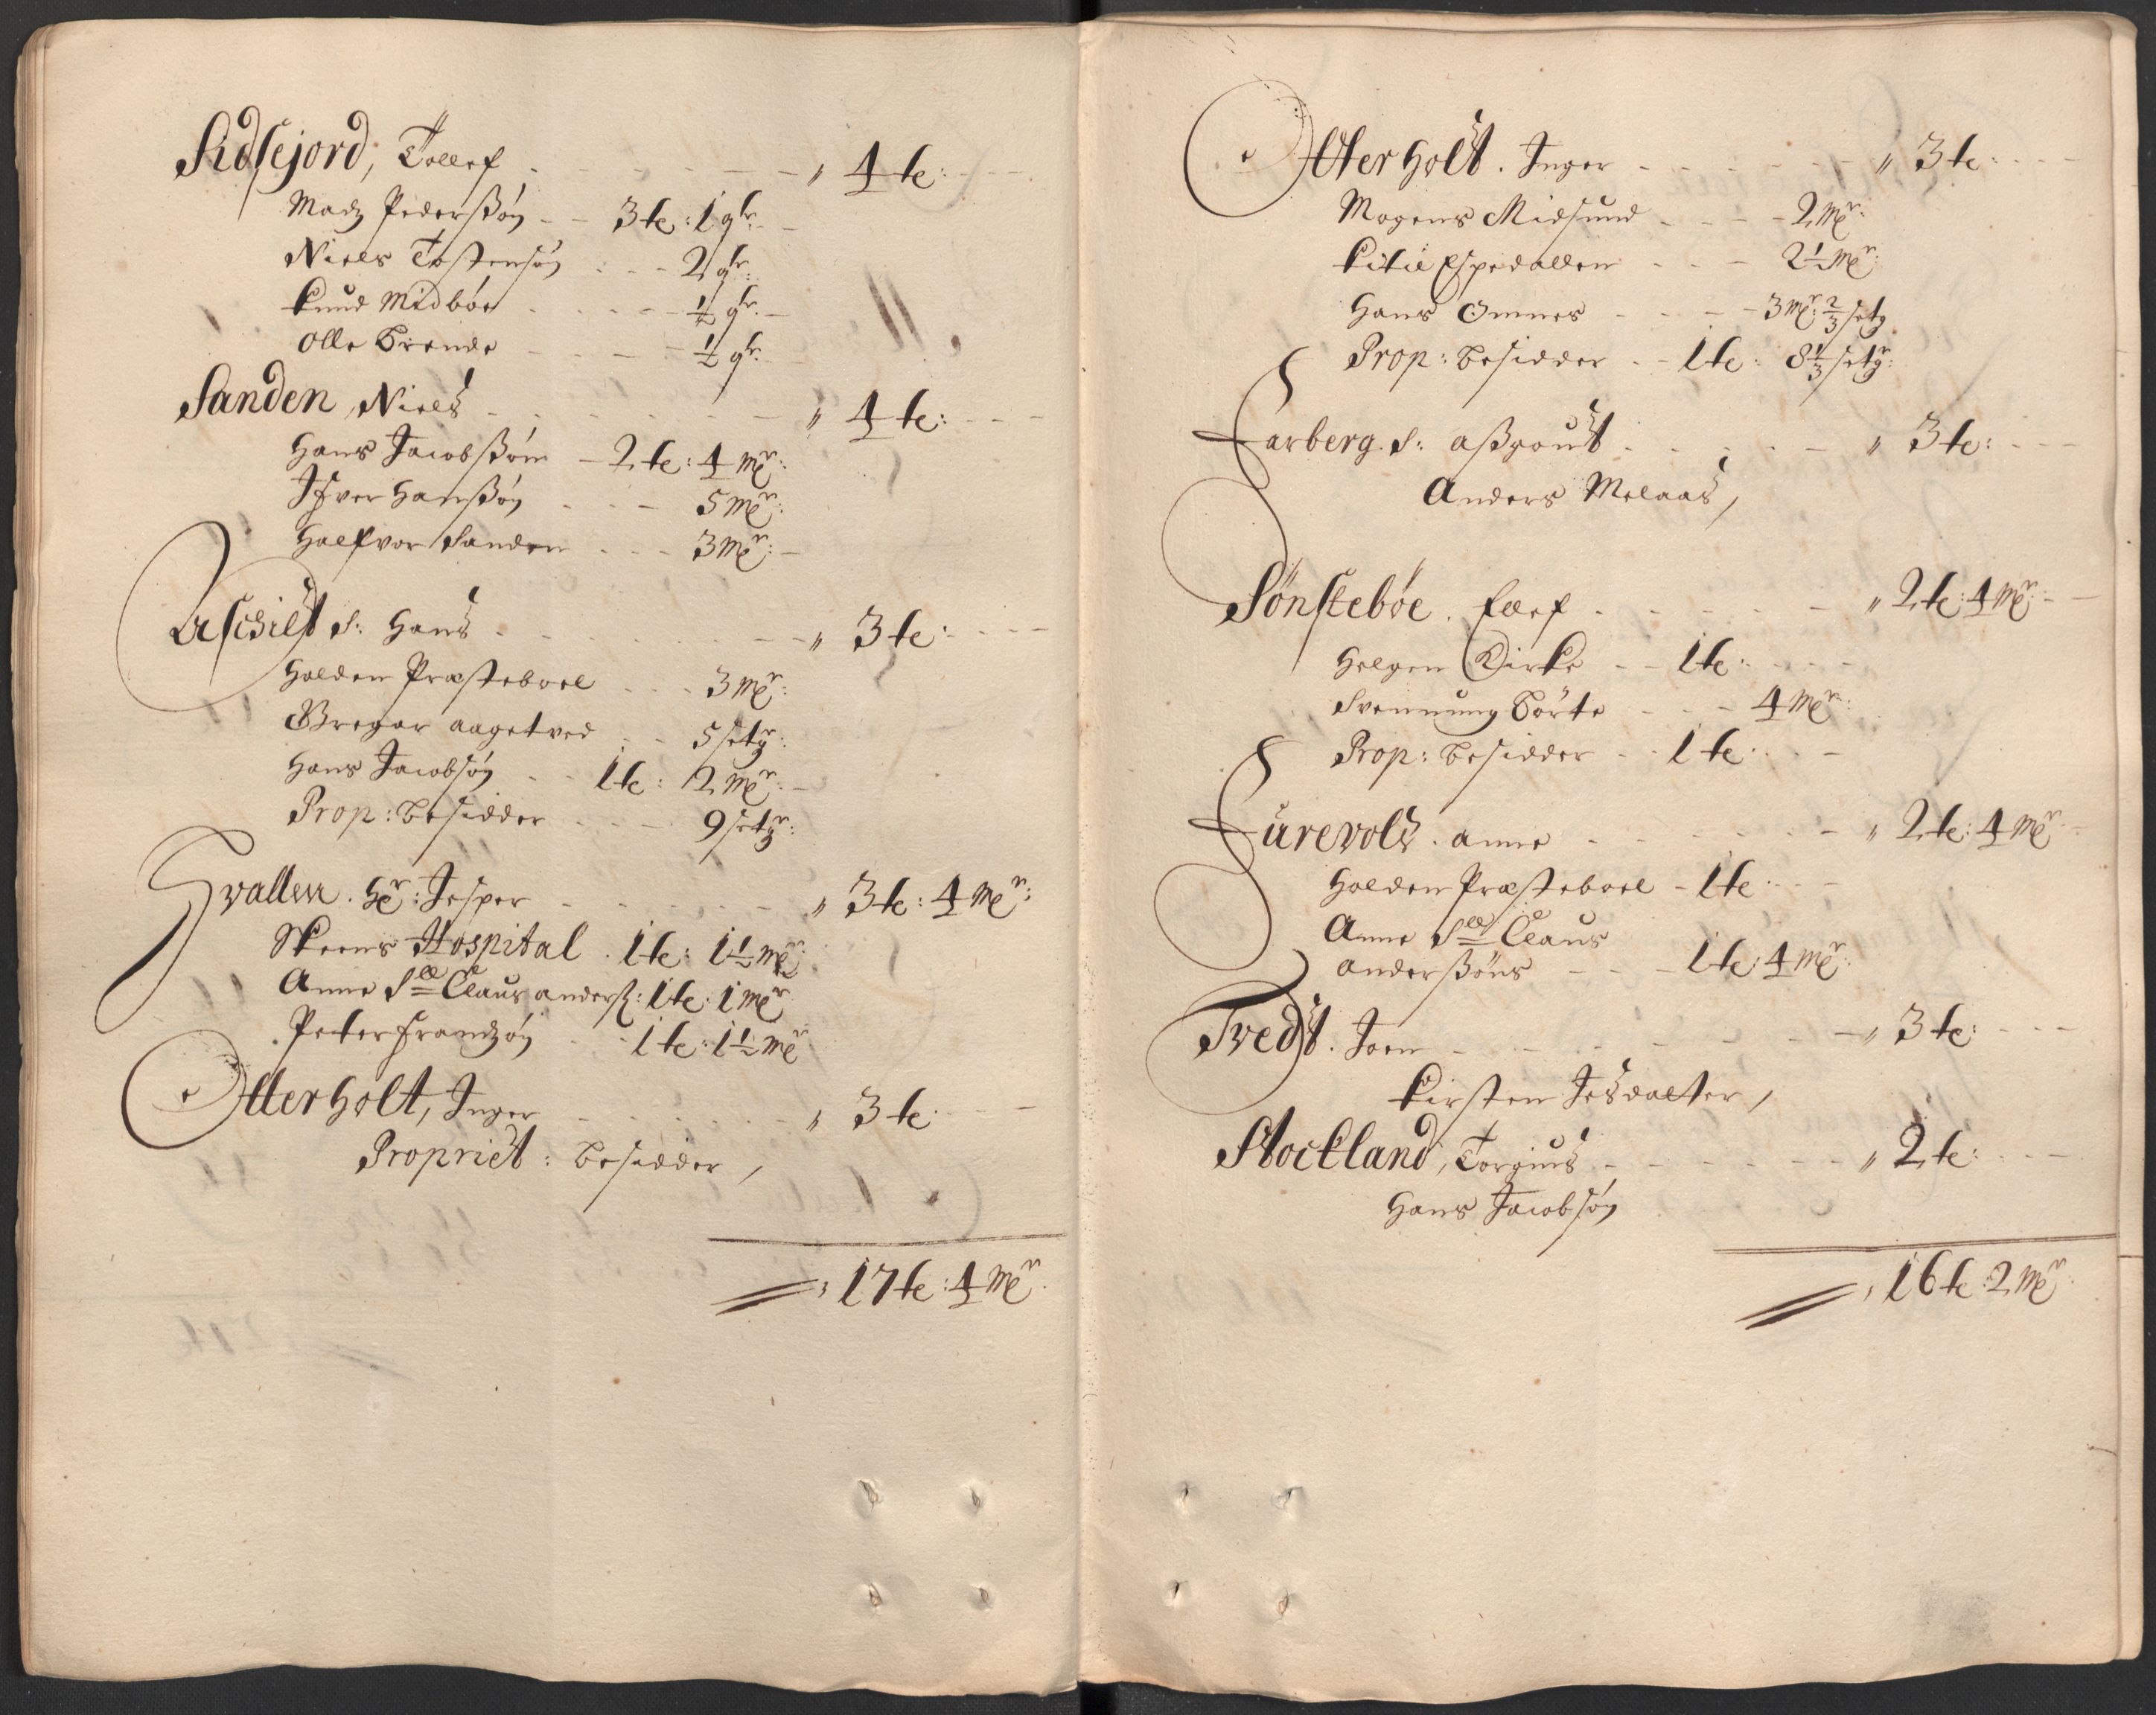 Kidsejord, Tollef - - - - - - " 4 te: - - -
Madz Pederßøn - - 3 te: 1 qr: -
Niels Tostensøn : - - 2 qr:
Knud Midbøe - - - - - ½ qr. -
Olle Brende - - - ½ qr:
Sanden, Niels - - - - - - " 4 te: - - -
Hans Jacobßøn - 2 te: 4 mɇr:
Ifver Hanßøn - - - 5 mɇr:
Halfvor Sanden - - - 3 mɇr: -
Aschilt S: Hans - - - - - - " 3 te: - - -
Holden Præsteboel - - - 3 mɇr:
Greger aagetved - - 5 setgr:
Hans Jacobsøn - - 1 te: 2 mɇr: -
Prop: Besidder - - - 9 setgr:
Hvallen. Hr: Jesper - - - - - " 3 te: 4 mɇr:
Skeens Hospital . 1 te: 1½ mɇr:
Anne Sll Claus anderß: 1 te: 1 mɇr
Peter Frandzøn - - 1 te: 1½ mɇr
Otterholt, Inger - - - - - " 3 te: - - -
Propriet: Besidder,
17 te: 4 mɇr.
Otterholt. Inger - - - - - - " 3 te: - - -
Mogens Midsund - - - - 2 mɇr:
Kitil Espedallen - - - 2½ mɇr:
Hans Omnes - - - - 3 mɇr: 2/3 setg
Prop: Besidder - - 1 te: 8 1/3 setgr:
Farberg. S: aßgout - - - - - " 3 te: - - -
Anders Melaas,
Sønstebøe. Leef - - - - - " 2 te: 4 mɇr: - -
Helgen Kirke - - 1 te: - - - -
Svennung Børte - - - 4 mɇr:
Prop: Besidder - - 1 te: - - -
Furevold. anne - - - - - - " 2 te: 4 mɇr: -
Holden Præsteboel - 1 te: - - -
Anne Sll Claus
anderßøns - - - 1 te: 4 mɇr:
Tvedt. Joen - - - - - - - " 3 te: - - -
Kirsten Jesdatter,
Stockland, Torgius - - - - - - " 2 te: - - -
Hans Jacobsøn
16 te: 2 mɇr